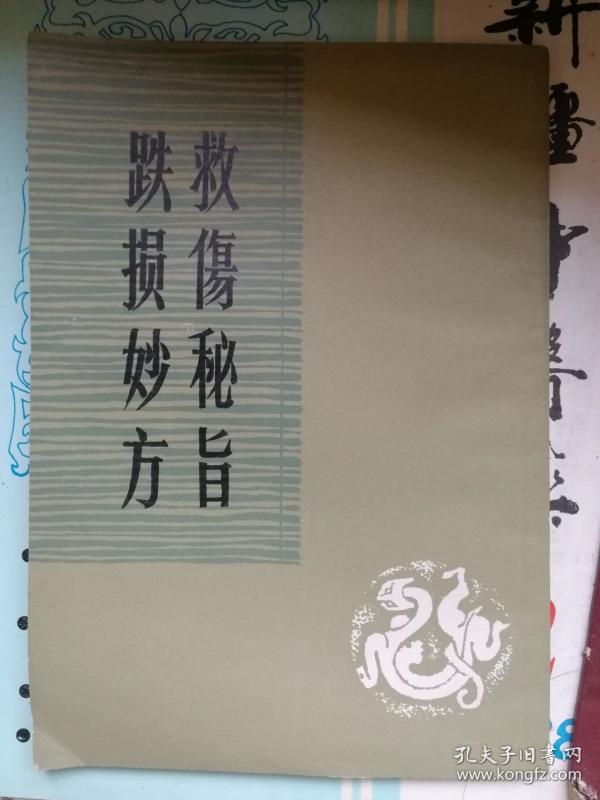 救傷秘旨
跌损妙方
新疆中醫
孔夫子旧書网
www.kongfz.com